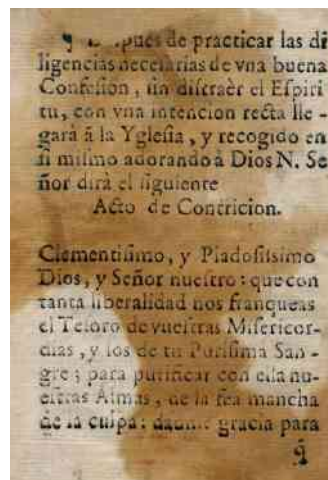 ¶ Despues de practicar las di
ligencias necesarias de vna buena
Confesion, sin distraèr el Espiri
tu, con vna intencion recta lle -
gará â la Yglesia, y recogido en
si mismo adorando à Dios N. Se
ñor dirà el siguiente
Acto de Contricion.
Clementisimo, y Piadosissimo
Dios, y Señor nuestro: que con
tanta liberalidad nos franqueas
el Tesoro de vuestras Misericor-
dias, y los de tu Purisima San -
gre; para purificar con ella nu-
estras Almas, de la fea mancha
de la culpa: daume gracia para
q̃